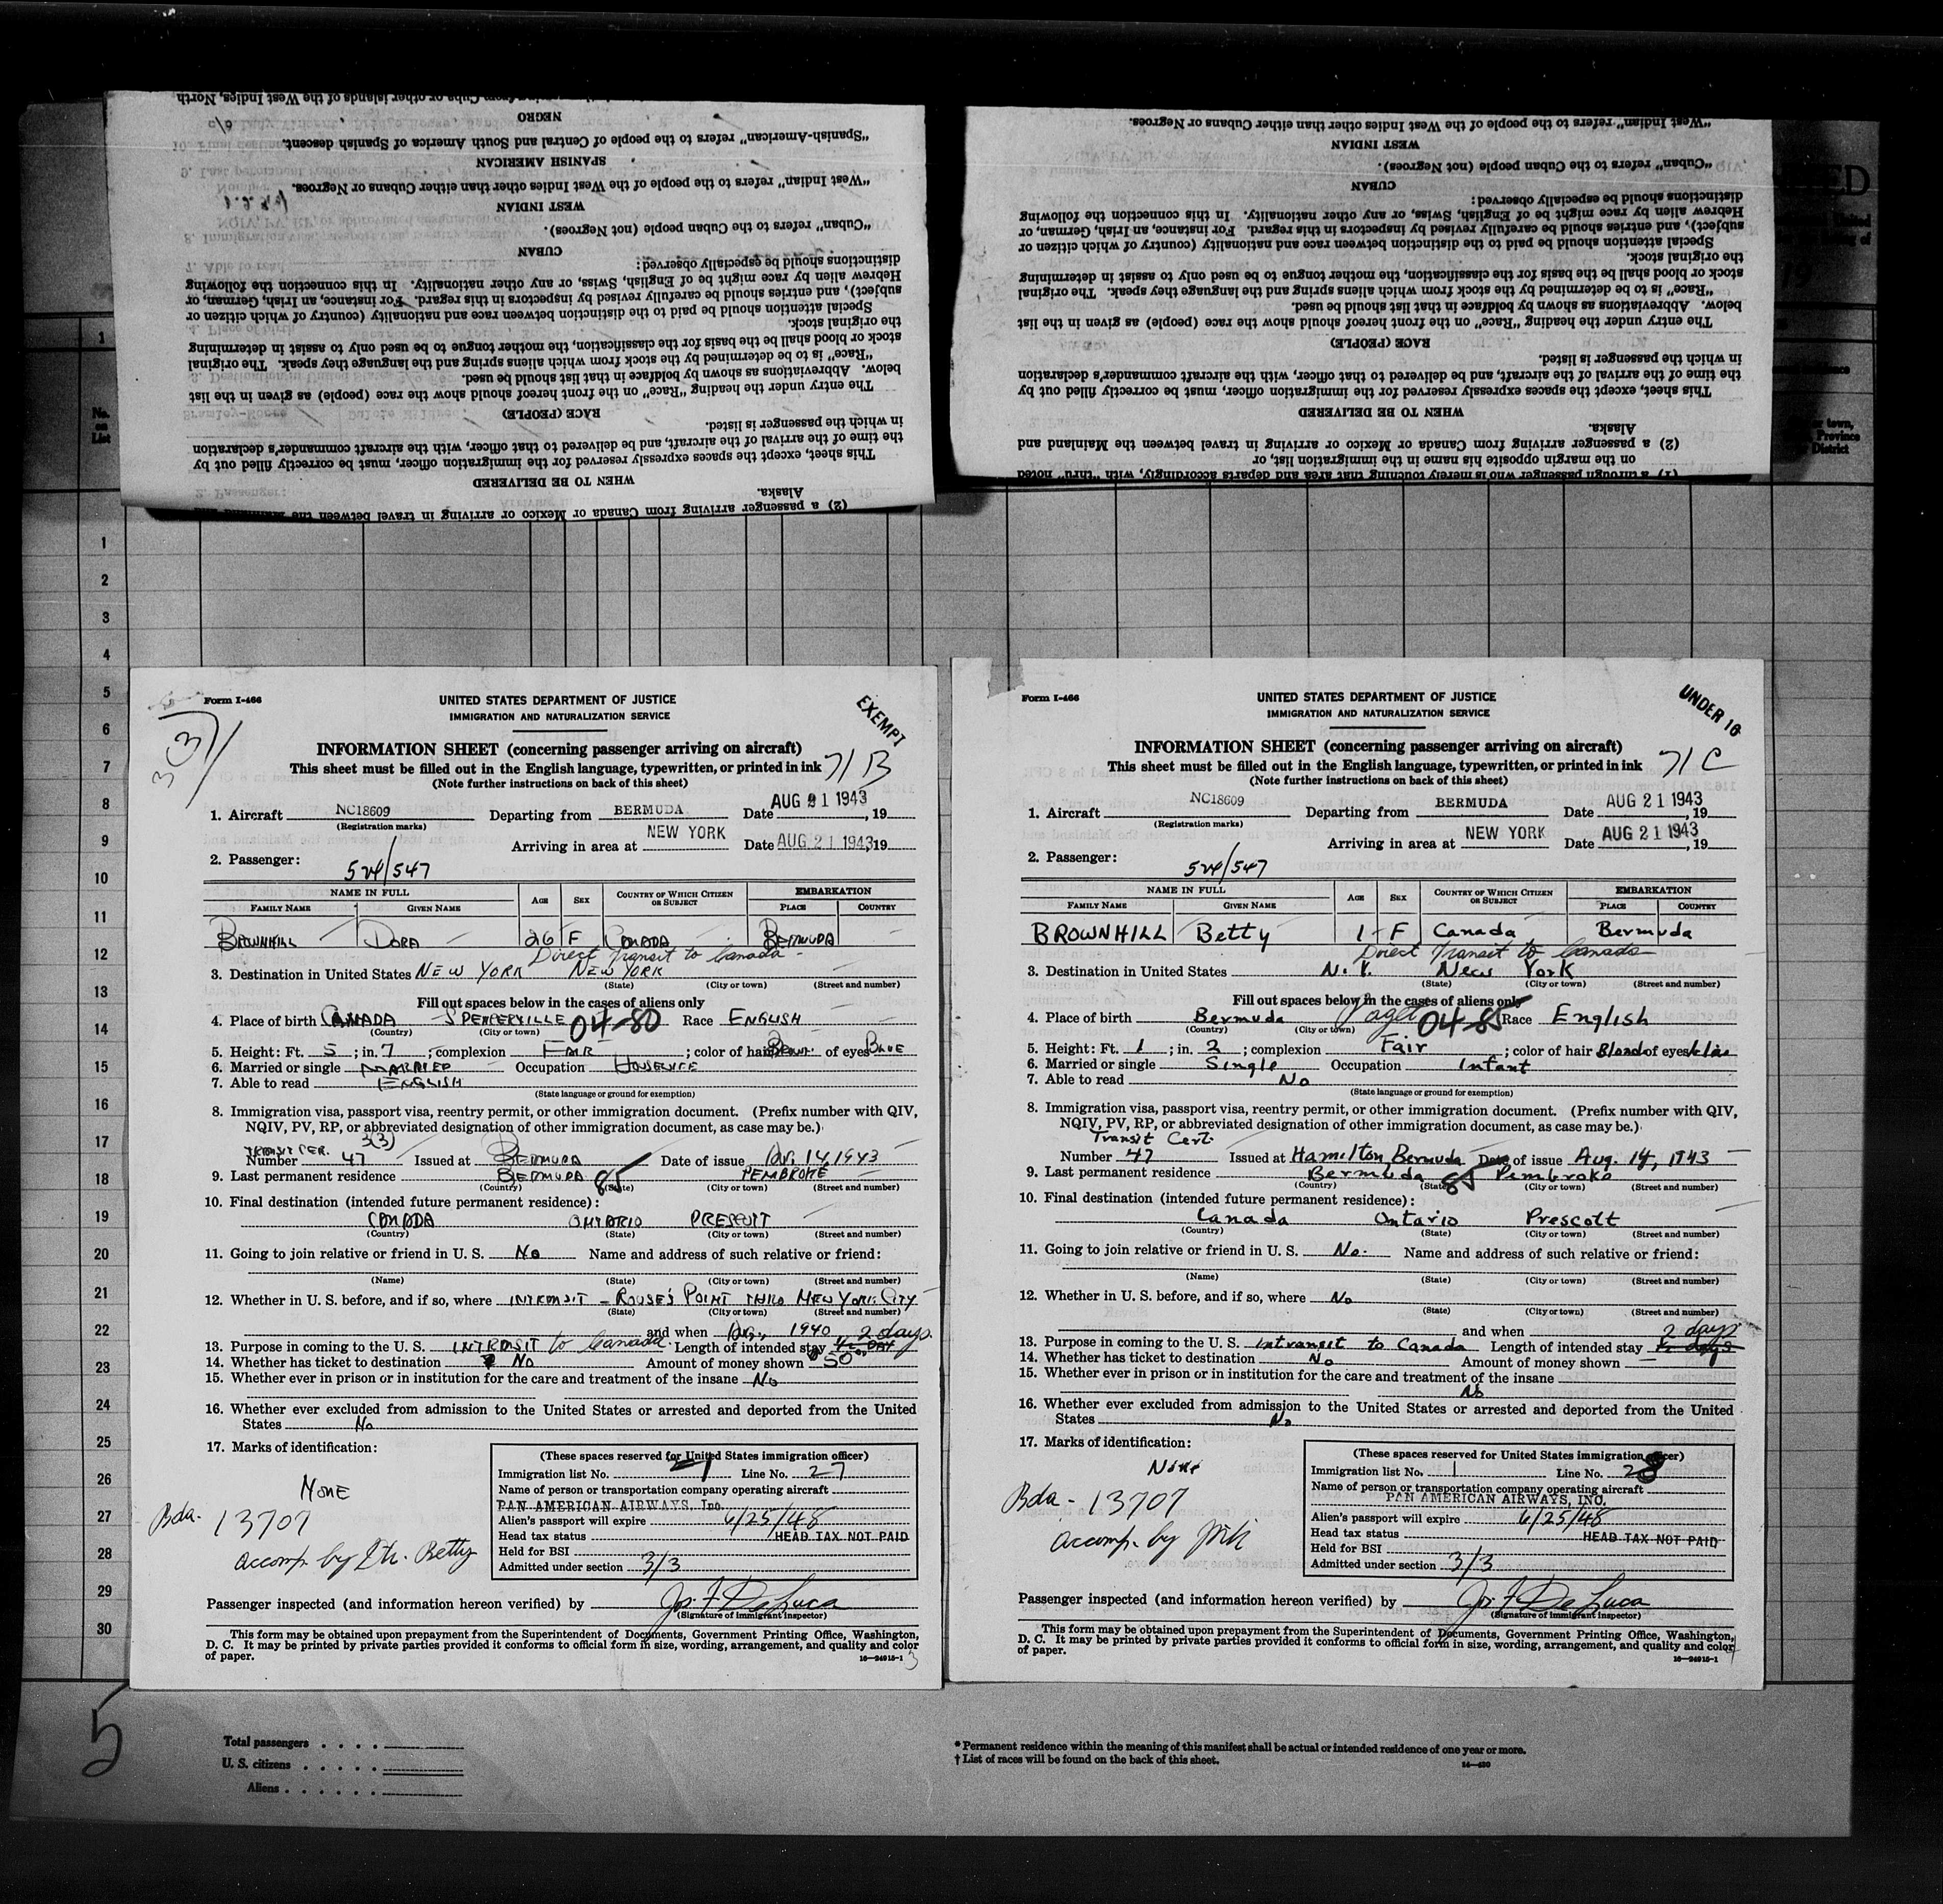 from Cuba or other islands of the West Indies, North
NEGRO
"Spanish-American" refers to the people of Central and South America of Spanish descent.
SPANISH AMERICAN
"West Indian" refers to the people of the West Indies other than either Cubans or Negroes.
WEST INDIAN
"Cuban" refers to the Cuban people (not Negroes).
CUBAN
distinctions should be especially observed:
Hebrew alien by race might be of English, Swiss, or any other nationality. In this connection the following
subject), and entries should be carefully revised by inspectors in this regard. For instance, an Irish, German, or
Special attention should be paid to the distinction between race and nationality (country of which citizen or
the original stock.
stock or blood shall be the basis for the classification, the mother tongue to be used only to assist in determining
"Race" is to be determined by the stock from which aliens spring and the language they speak. The original
below. Abbreviations as shown by boldface in that list should be used.
The entry under the heading "Race" on the front hereof should show the race (people) as given in the list
RACE (PEOPLE)
in which the passenger is listed.
the time of the arrival of the aircraft, and be delivered to that officer, with the aircraft commander's declaration
This sheet, except the spaces expressly reserved for the immigration officer, must be correctly filled out by
WHEN TO BE DELIVERED
Alaska.
(2) a passenger arriving from Canada or Mexico or arriving in travel between the Mainland and
"West Indian" refers to the people of the West Indies other than either Cubans or Negroes.
WEST INDIAN
"Cuban" refers to the Cuban people (not Negroes).
CUBAN
distinctions should be especially observed:
Hebrew alien by race might be of English, Swiss, or any other nationality. In this connection the following
subject), and entries should be carefully revised by inspectors in this regard. For instance, an Irish, German, or
Special attention should be paid to the distinction between race and nationality (country of which citizen or
the original stock.
stock or blood shall be the basis for the classification, the mother tongue to be used only to assist in determining
"Race" is to be determined by the stock from which aliens spring and the language they speak. The original
below. Abbreviations as shown by boldface in that list should be used.
The entry under the heading "Race" on the front hereof should show the race (people) as given in the list
RACE (PEOPLE)
in which the passenger is listed.
the time of the arrival of the aircraft, and be delivered to that officer, with the aircraft commander's declaration
This sheet, except the spaces expressly reserved for the immigration officer, must be correctly filled out by
WHEN TO BE DELIVERED
Alaska.
(2) a passenger arriving from Canada or Mexico or arriving in travel between the Mainland and
on the margin opposite his name in the immigration list, or
(1) a through passenger who is merely touching that area and departs accordingly, with "thru" noted
1
No. on List
1
2
3
4
5
6
7
8
9
10
11
12
13
14
15
16
17
18
19
20
21
22
23
24
25
26
27
28
29
30
Form I-466
UNITED STATES DEPARTMENT OF JUSTICE
IMMIGRATION AND NATURALIZATION SERVICE
EXEMPT
3(3)
INFORMATION SHEET (concerning passenger arriving on aircraft)
This sheet must be filled out in the English language, typewritten, or printed in ink 71 B
(Note further instructions on back of this sheet)
1. Aircraft NC18609 Departing from BERMUDA Date AUG 21 1943, 19
(Registration marks)
Arriving in area at NEW YORK Date AUG 21 1943, 19
2. Passenger: 524/547
NAME IN FULL AGE SEX COUNTRY OF WHICH CITIZEN OR SUBJECT EMBARKATION
FAMILY NAME GIVEN NAME PLACE COUNTRY
BROWNHILL DORA 26 F CANADA BERMUDA
Direct Transit to Canada
3. Destination in United States NEW YORK NEW YORK
(State) (City or town) (Street and number)
Fill out spaces below in the cases of aliens only
4. Place of birth CANADA SPENCERVILLE 04-80 Race ENGLISH
(Country) (City or town)
5. Height: Ft. 5 ; in. 7 ; complexion FAIR ; color of hair BROWN of eyes BLUE
6. Married or single MARRIED Occupation HOUSEWIFE
7. Able to read ENGLISH
(State language or ground for exemption)
8. Immigration visa, passport visa, reentry permit, or other immigration document. (Prefix number with QIV,
NQIV, PV, RP, or abbreviated designation of other immigration document, as case may be.)
TRANSIT CER. 3(3)
Number 47 Issued at BERMUDA Date of issue AUG. 14, 1943
9. Last permanent residence BERMUDA 85 PEMBROKE
(Country) (State) (City or town) (Street and number)
10. Final destination (intended future permanent residence):
CANADA ONTARIO PRESCOTT
(Country) (State) (City or town) (Street and number)
11. Going to join relative or friend in U. S. No Name and address of such relative or friend:
(Name) (State) (City or town) (Street and number)
12. Whether in U. S. before, and if so, where INTRANSIT - ROUSE'S POINT THRO NEW YORK CITY
(State) (City or town) (Street and number)
and when Aug., 1940 2 days
13. Purpose in coming to the U. S. INTRANSIT to Canada. Length of intended stay ½ DAY
14. Whether has ticket to destination No Amount of money shown $50.00
15. Whether ever in prison or in institution for the care and treatment of the insane No
16. Whether ever excluded from admission to the United States or arrested and deported from the United
States No
17. Marks of identification:
NONE
Bda. 13707
accomp. by Dtr. Betty
(These spaces reserved for United States immigration officer)
Immigration list No. 1 Line No. 27
Name of person or transportation company operating aircraft
PAN AMERICAN AIRWAYS, Inc.
Alien's passport will expire 6/25/48
Head tax status HEAD TAX NOT PAID
Held for BSI
Admitted under section 3/3
Passenger inspected (and information hereon verified) by Jos. F. De Luca
(Signature of immigrant inspector)
This form may be obtained upon prepayment from the Superintendent of Documents, Government Printing Office, Washington,
D. C. It may be printed by private parties provided it conforms to official form in size, wording, arrangement, and quality and color
of paper. 16—24915-1
3
Form I-466
UNITED STATES DEPARTMENT OF JUSTICE
IMMIGRATION AND NATURALIZATION SERVICE
UNDER 16
INFORMATION SHEET (concerning passenger arriving on aircraft)
This sheet must be filled out in the English language, typewritten, or printed in ink 71 C
(Note further instructions on back of this sheet)
1. Aircraft NC18609 Departing from BERMUDA Date AUG 21 1943, 19
(Registration marks)
Arriving in area at NEW YORK Date AUG 21 1943, 19
2. Passenger: 524/547
NAME IN FULL AGE SEX COUNTRY OF WHICH CITIZEN OR SUBJECT EMBARKATION
FAMILY NAME GIVEN NAME PLACE COUNTRY
BROWNHILL Betty 1 F Canada Bermuda
Direct Transit to Canada
3. Destination in United States N. Y. New York
(State) (City or town) (Street and number)
Fill out spaces below in the cases of aliens only
4. Place of birth Bermuda Paget 04-85 Race English
(Country) (City or town)
5. Height: Ft. 1 ; in. 2 ; complexion Fair ; color of hair Blond of eyes blue
6. Married or single Single Occupation Infant
7. Able to read No
(State language or ground for exemption)
8. Immigration visa, passport visa, reentry permit, or other immigration document. (Prefix number with QIV,
NQIV, PV, RP, or abbreviated designation of other immigration document, as case may be.)
Transit Cert.
Number 47 Issued at Hamilton, Bermuda Date of issue Aug. 14, 1943
9. Last permanent residence Bermuda 85 Pembroke
(Country) (State) (City or town) (Street and number)
10. Final destination (intended future permanent residence):
Canada Ontario Prescott
(Country) (State) (City or town) (Street and number)
11. Going to join relative or friend in U. S. No. Name and address of such relative or friend:
(Name) (State) (City or town) (Street and number)
12. Whether in U. S. before, and if so, where No
(State) (City or town) (Street and number)
and when 2 days
13. Purpose in coming to the U. S. intransit to Canada Length of intended stay ½ days
14. Whether has ticket to destination No Amount of money shown —
15. Whether ever in prison or in institution for the care and treatment of the insane
No
16. Whether ever excluded from admission to the United States or arrested and deported from the United
States No
17. Marks of identification:
None
Bda - 13707
accomp. by
(These spaces reserved for United States immigration officer)
Immigration list No. 1 Line No. 28
Name of person or transportation company operating aircraft
PAN AMERICAN AIRWAYS, INC.
Alien's passport will expire 6/25/48
Head tax status HEAD TAX NOT PAID
Held for BSI
Admitted under section 3/3
Passenger inspected (and information hereon verified) by Jos. F. De Luca
(Signature of immigrant inspector)
This form may be obtained upon prepayment from the Superintendent of Documents, Government Printing Office, Washington,
D. C. It may be printed by private parties provided it conforms to official form in size, wording, arrangement, and quality and color
of paper. 16—24915-1
5
Total passengers . . . .
U. S. citizens . . . . .
Aliens . . . . . .
* Permanent residence within the meaning of this manifest shall be actual or intended residence of one year or more.
† List of races will be found on the back of this sheet.